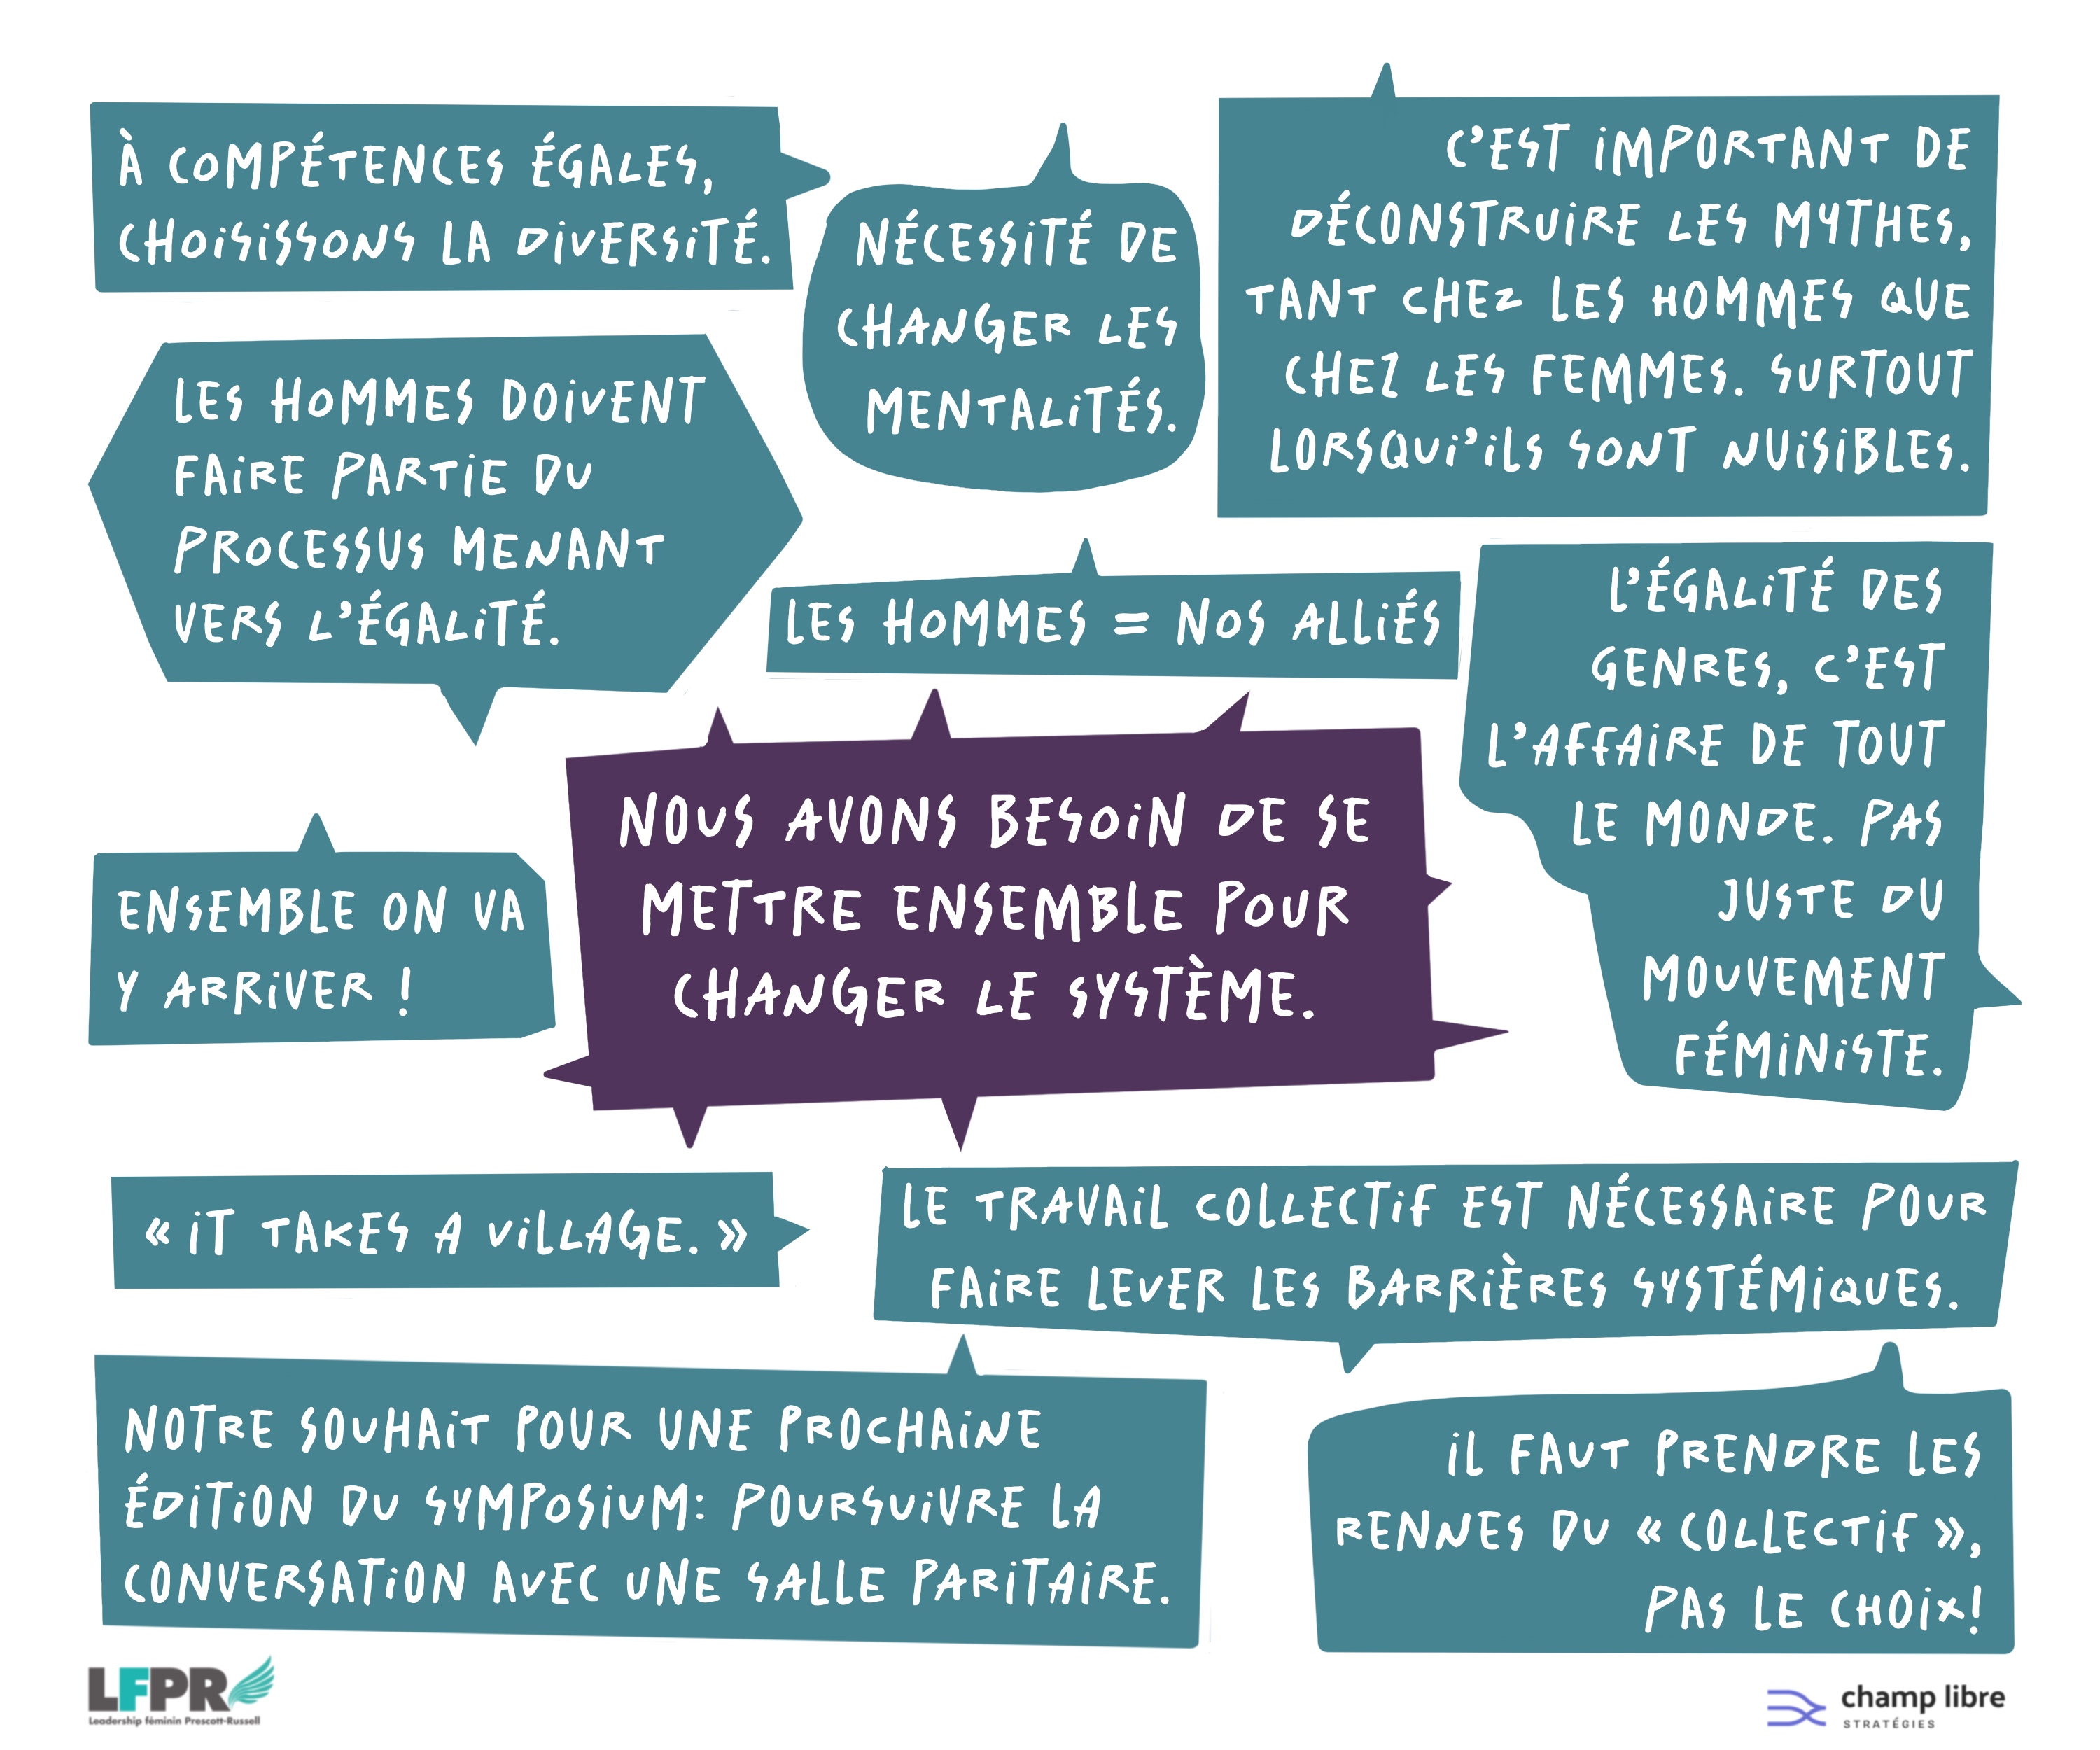 À COMPÉTENCES ÉGALES,
CHOISISSONS LA DIVERSITÉ.
NÉCESSITÉ DE
CHANGER LES
MENTALITÉS.
C'EST IMPORTANT DE
DÉCONSTRUIRE LES MYTHES,
TANT CHEZ LES HOMMES QUE
CHEZ LES FEMMES. SURTOUT
LORSQUI'ILS SONT NUISIBLES.
LES HOMMES DOIVENT
FAIRE PARTIE DU
PROCESSUS MENANT
VERS L'ÉGALITÉ.
LES HOMMES = NOS ALLIÉS
L'ÉGALITÉ DES
GENRES, C'EST
L'AFFAIRE DE TOUT
LE MONDE. PAS
JUSTE DU
MOUVEMENT
FÉMINISTE.
NOUS AVONS BESOIN DE SE
METTRE ENSEMBLE POUR
CHANGER LE SYSTÈME.
ENSEMBLE ON VA
Y ARRIVER !
« IT TAKES A VILLAGE. »
LE TRAVAIL COLLECTIF EST NÉCESSAIRE POUR
FAIRE LEVER LES BARRIÈRES SYSTÉMIQUES.
NOTRE SOUHAIT POUR UNE PROCHAINE
ÉDITION DU SYMPOSIUM: POURSUIVRE LA
CONVERSATION AVEC UNE SALLE PARITAIRE.
IL FAUT PRENDRE LES
RENNES DU « COLLECTIF »,
PAS LE CHOIX!
LFPR
Leadership féminin Prescott-Russell
champ libre
STRATÉGIES